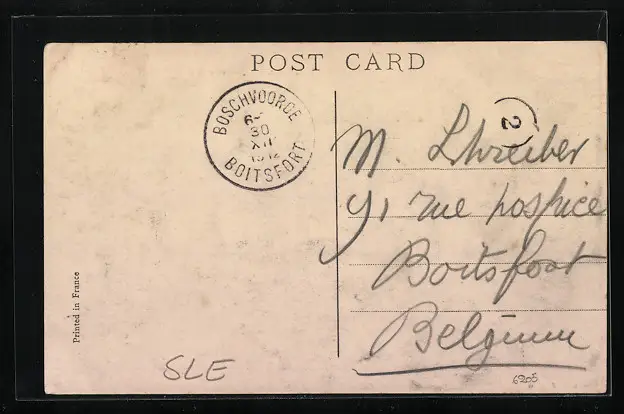 POST CARD
BOSCHVOORDE
6-
30
XII
1912
BOITSFORT
2
M. Schreiber
91 rue hospice
Boitsfort
Belgium
Printed in France
SLE
6205